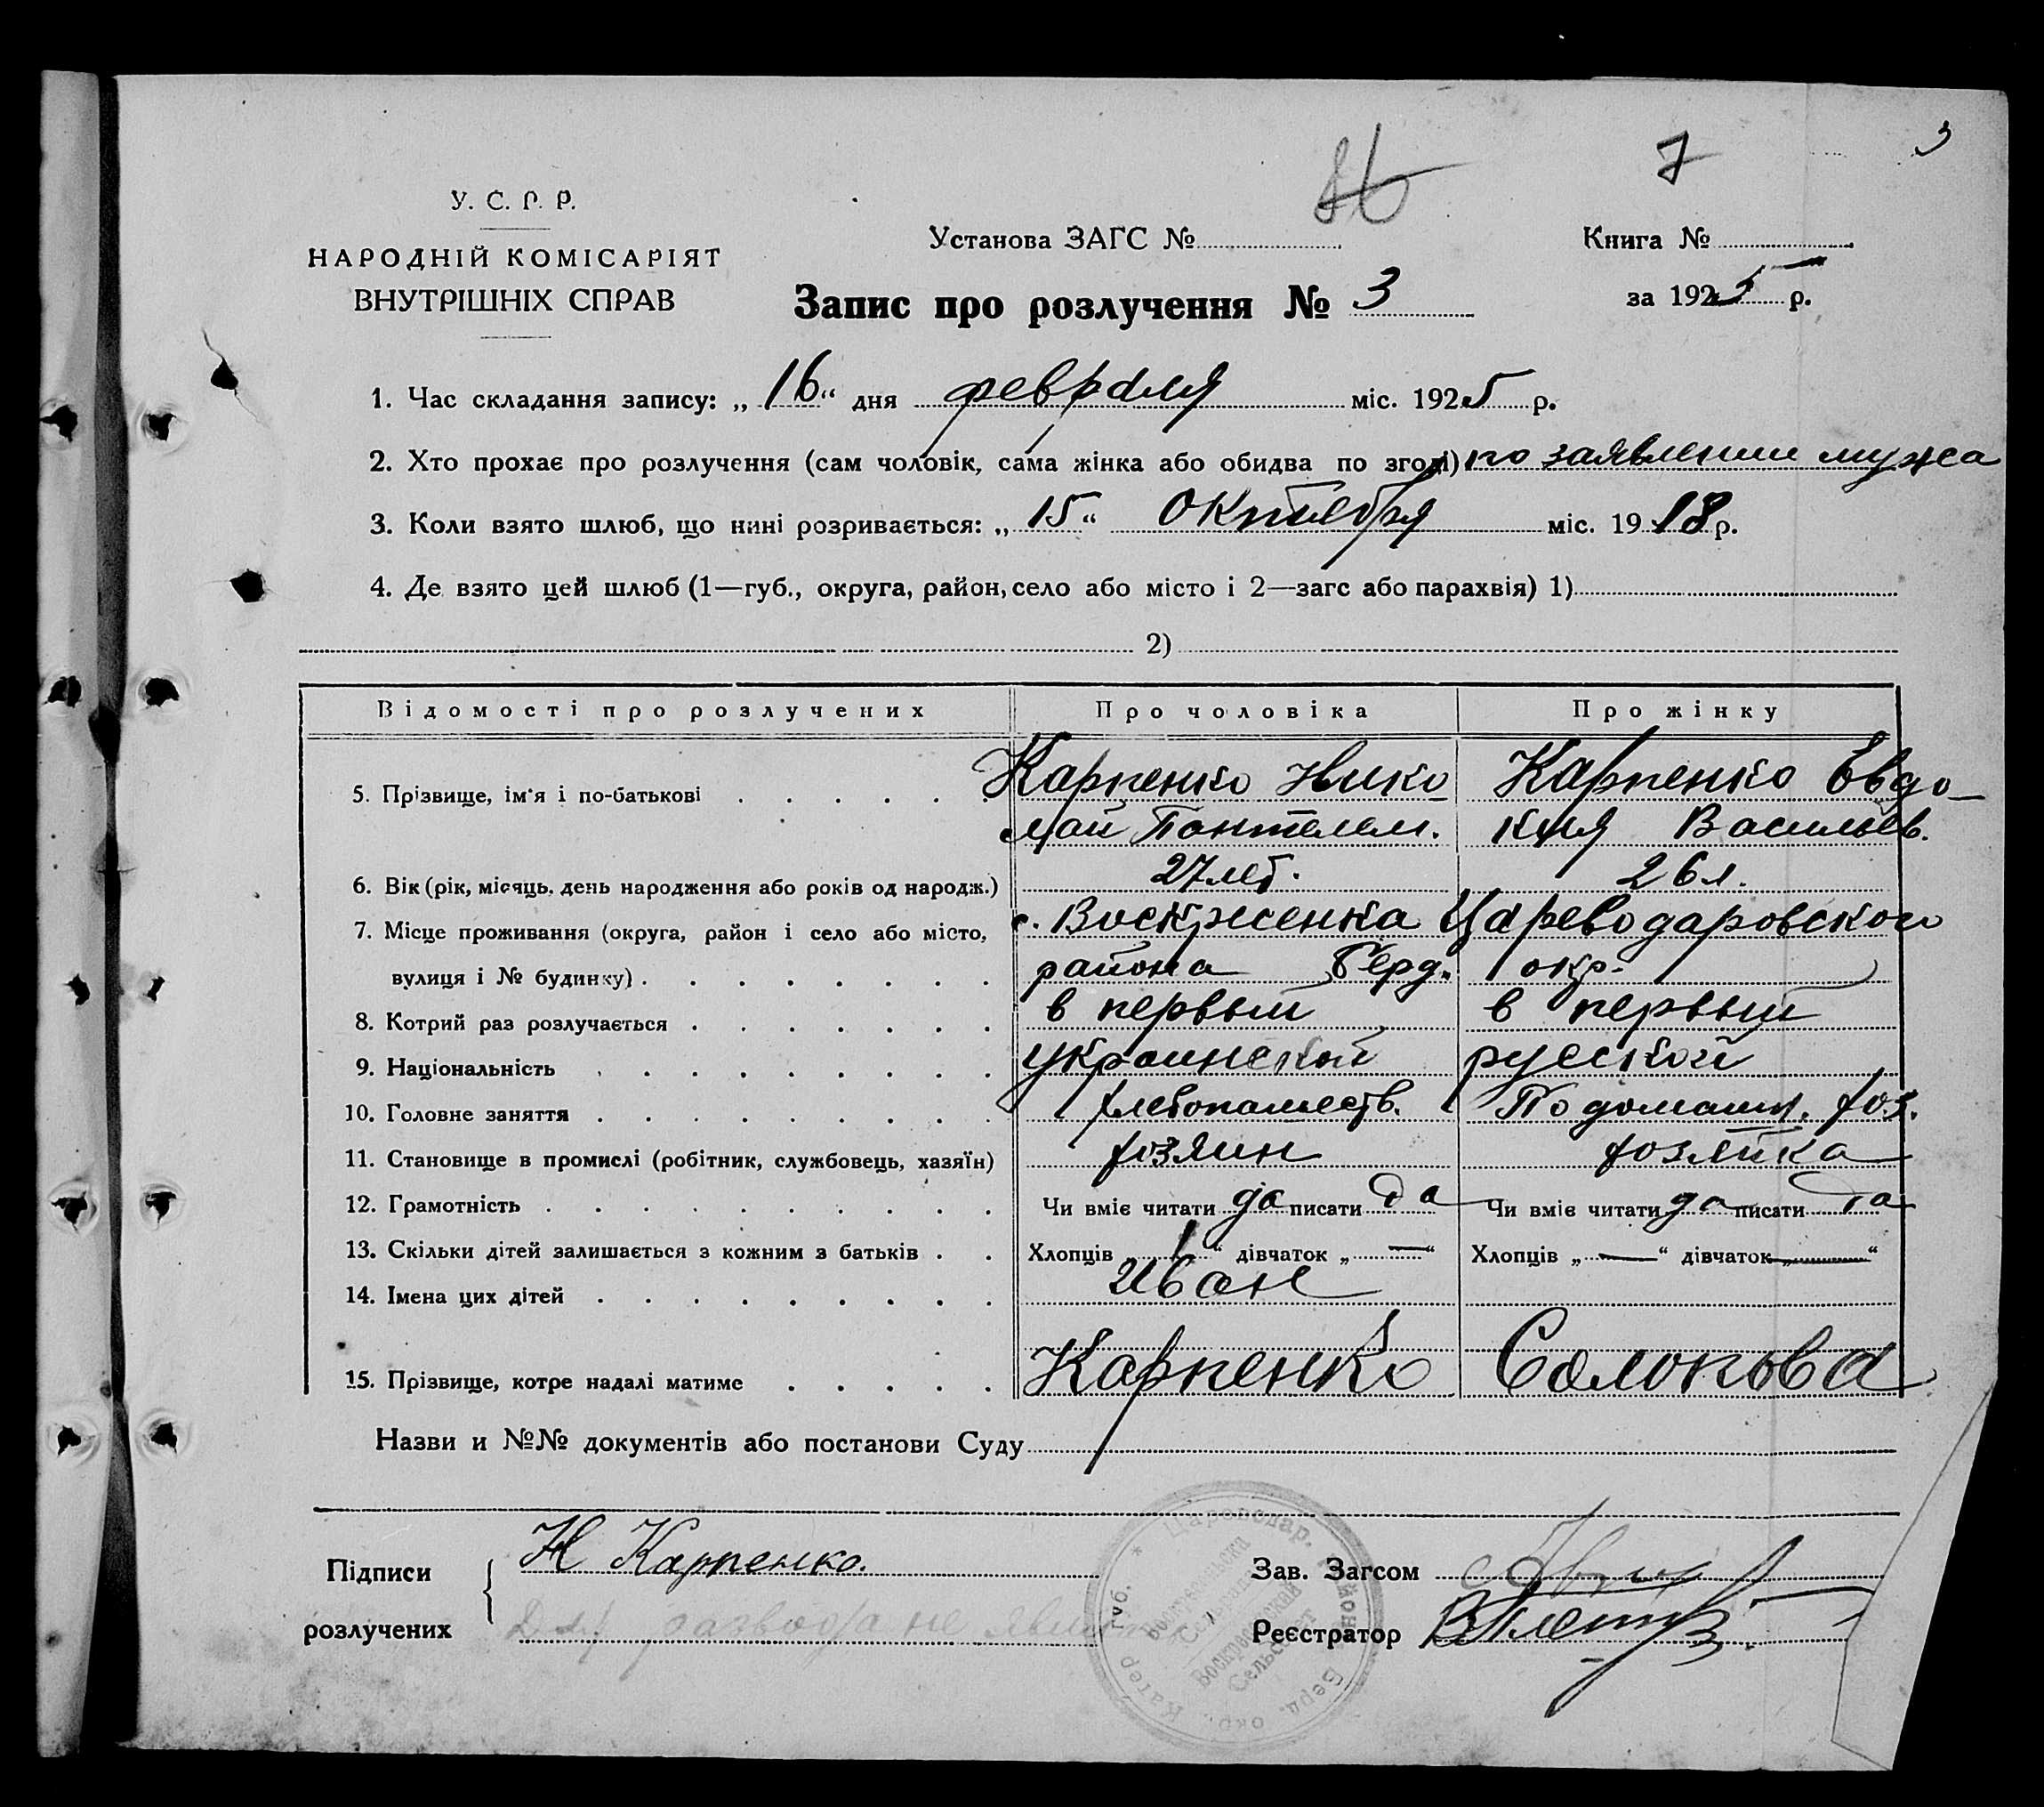 7
3
У. С. Р. Р.
НАРОДНІЙ КОМІСАРІЯТ
ВНУТРІШНІХ СПРАВ
Установа ЗАГС №
Книга №
за 1925 р.
Запис про розлучення № 3
1. Час складання запису: „ 16 “ дня февраля міс. 1925 р.
2. Хто прохає про розлучення (сам чоловік, сама жінка або обидва по згоді) по заявлении мужа
3. Коли взято шлюб, що нині розривається: „ 15 “ Октября міс. 19 18 р.
4. Де взято цей шлюб (1—губ., округа, район, село або місто і 2—загс або парахвія) 1)
2)
Відомості про розлучених Про чоловіка Про жінку
5. Прізвище, ім'я і по-батькові Карпенко Нико Карпенко Евдо-
лай Пантелем. кия Васильев.
6. Вік (рік, місяць, день народження або років од народж.) 27 лет. 26 л.
7. Місце проживання (округа, район і село або місто, с. Воскресенка Цареводаровского
вулиця і № будинку) района Берд. окр.
8. Котрий раз розлучається в первый в первый
9. Національність украинской русской
10. Головне заняття хлебопашеств. По домашн. хоз.
11. Становище в промислі (робітник, службовець, хазяїн) хозяин хозяйка
12. Грамотність Чи вміє читати да писати да Чи вміє читати да писати да
13. Скільки дітей залишається з кожним з батьків Хлопців „ 1 “ дівчаток „ — “ Хлопців „ — “ дівчаток „ — “
14. Імена цих дітей Иван
15. Прізвище, котре надалі матиме Карпенко Солопова
Назви и №№ документів або постанови Суду
Підписи
розлучених
Н Карпенко.
Для развода не
Зав. Загсом
Реєстратор
Цареводар. район
Берд. окр. Катер. губ.
Воскресенский
Сельсовет